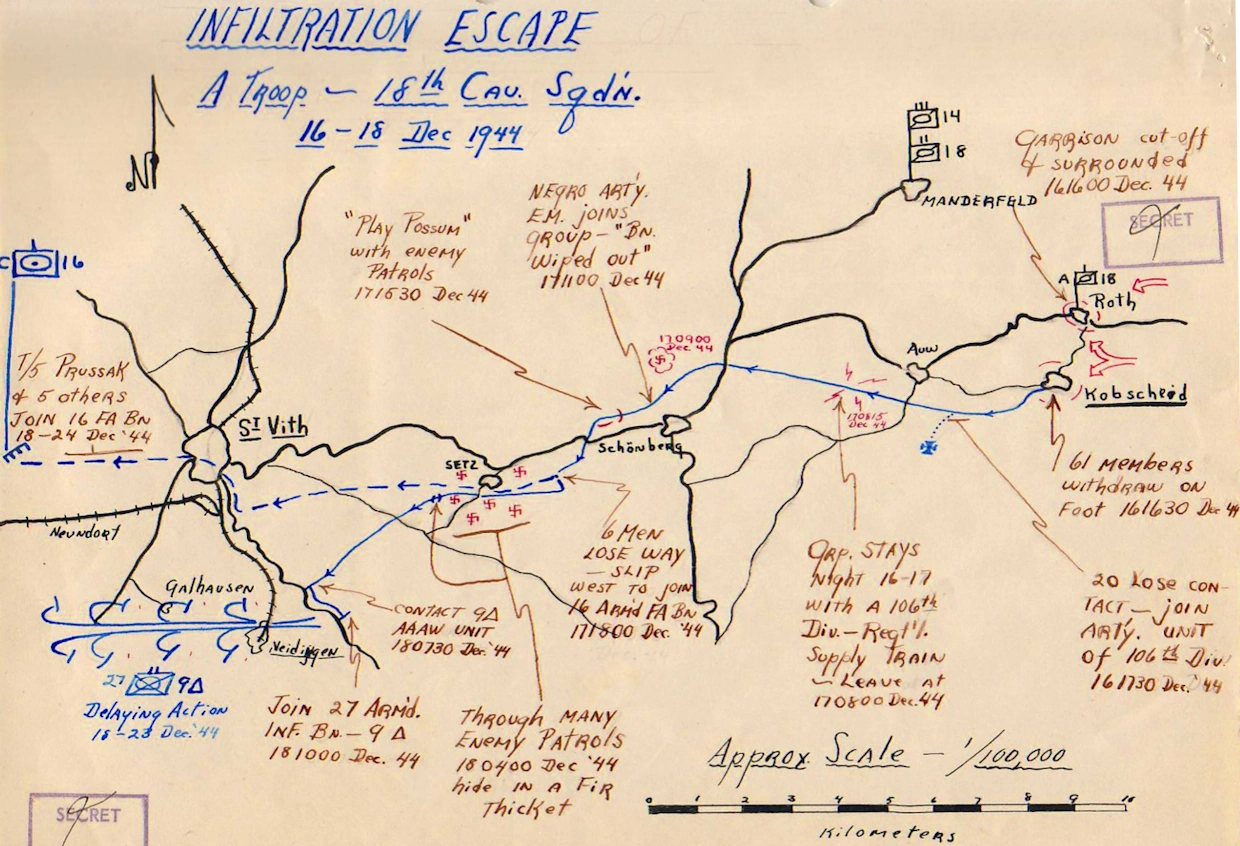 INFILTRATION ESCAPE
A TROOP – 18th CAV. Sqd'n.
16–18 Dec 1944
N
14
18
MANDERFELD
GARRISON cut-off
& SURROUNDED
161600 Dec. 44
SECRET
A 18
Roth
Kobscheid
NEGRO ART'Y.
E.M. JOINS
GROUP – "BN.
Wiped out"
171100 Dec 44
"PLAY POSSUM"
with enemy
PATROLS
171530 Dec 44
C 16
T/5 PRUSSAK
& 5 others
JOIN 16 FA BN
18–24 Dec '44
ST Vith
170900
Dec 44
Auw
170815
Dec 44
Schönberg
SETZ
61 members
withdraw on
Foot 161630 Dec 44
Neundorf
6 MEN
LOSE WAY
– SLIP
west to join
16 Arm'd FA BN
171800 Dec. '44
GRP. STAYS
Night 16–17
with A 106th
Div. – Regt'l.
Supply TRAIN
– LEAVE at
170800 Dec. 44
20 LOSE CON-
TACT – join
ARTY. UNIT
of 106th Div.
161730 Dec. '44
Galhausen
Neidingen
CONTACT 9Δ
AAAW UNIT
180730 Dec. '44
27 9Δ
Delaying Action
18–23 Dec. '44
Join 27 ARM'd.
INF. BN. – 9 Δ
181000 Dec. 44
THROUGH MANY
ENEMY PATROLS
180400 Dec '44
hide IN A FIR
Thicket
Approx. Scale – 1/100,000
0 1 2 3 4 5 6 7 8 9 10
Kilometers
SECRET